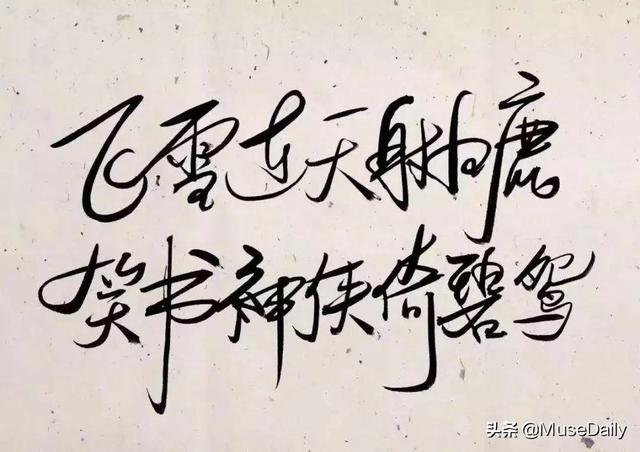 飞雪连天射白鹿
笑书神侠倚碧鸳
头条 @MuseDaily